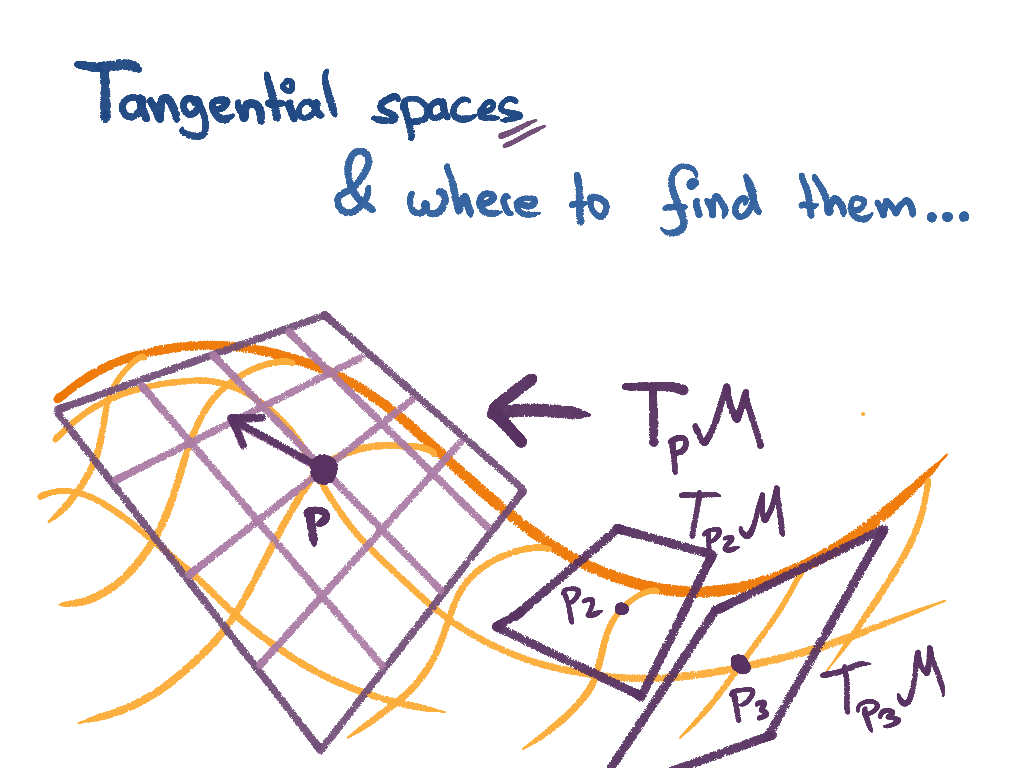 Tangential spaces
& where to find them...
TpM
Tp2M
p
p2
p3
Tp3M